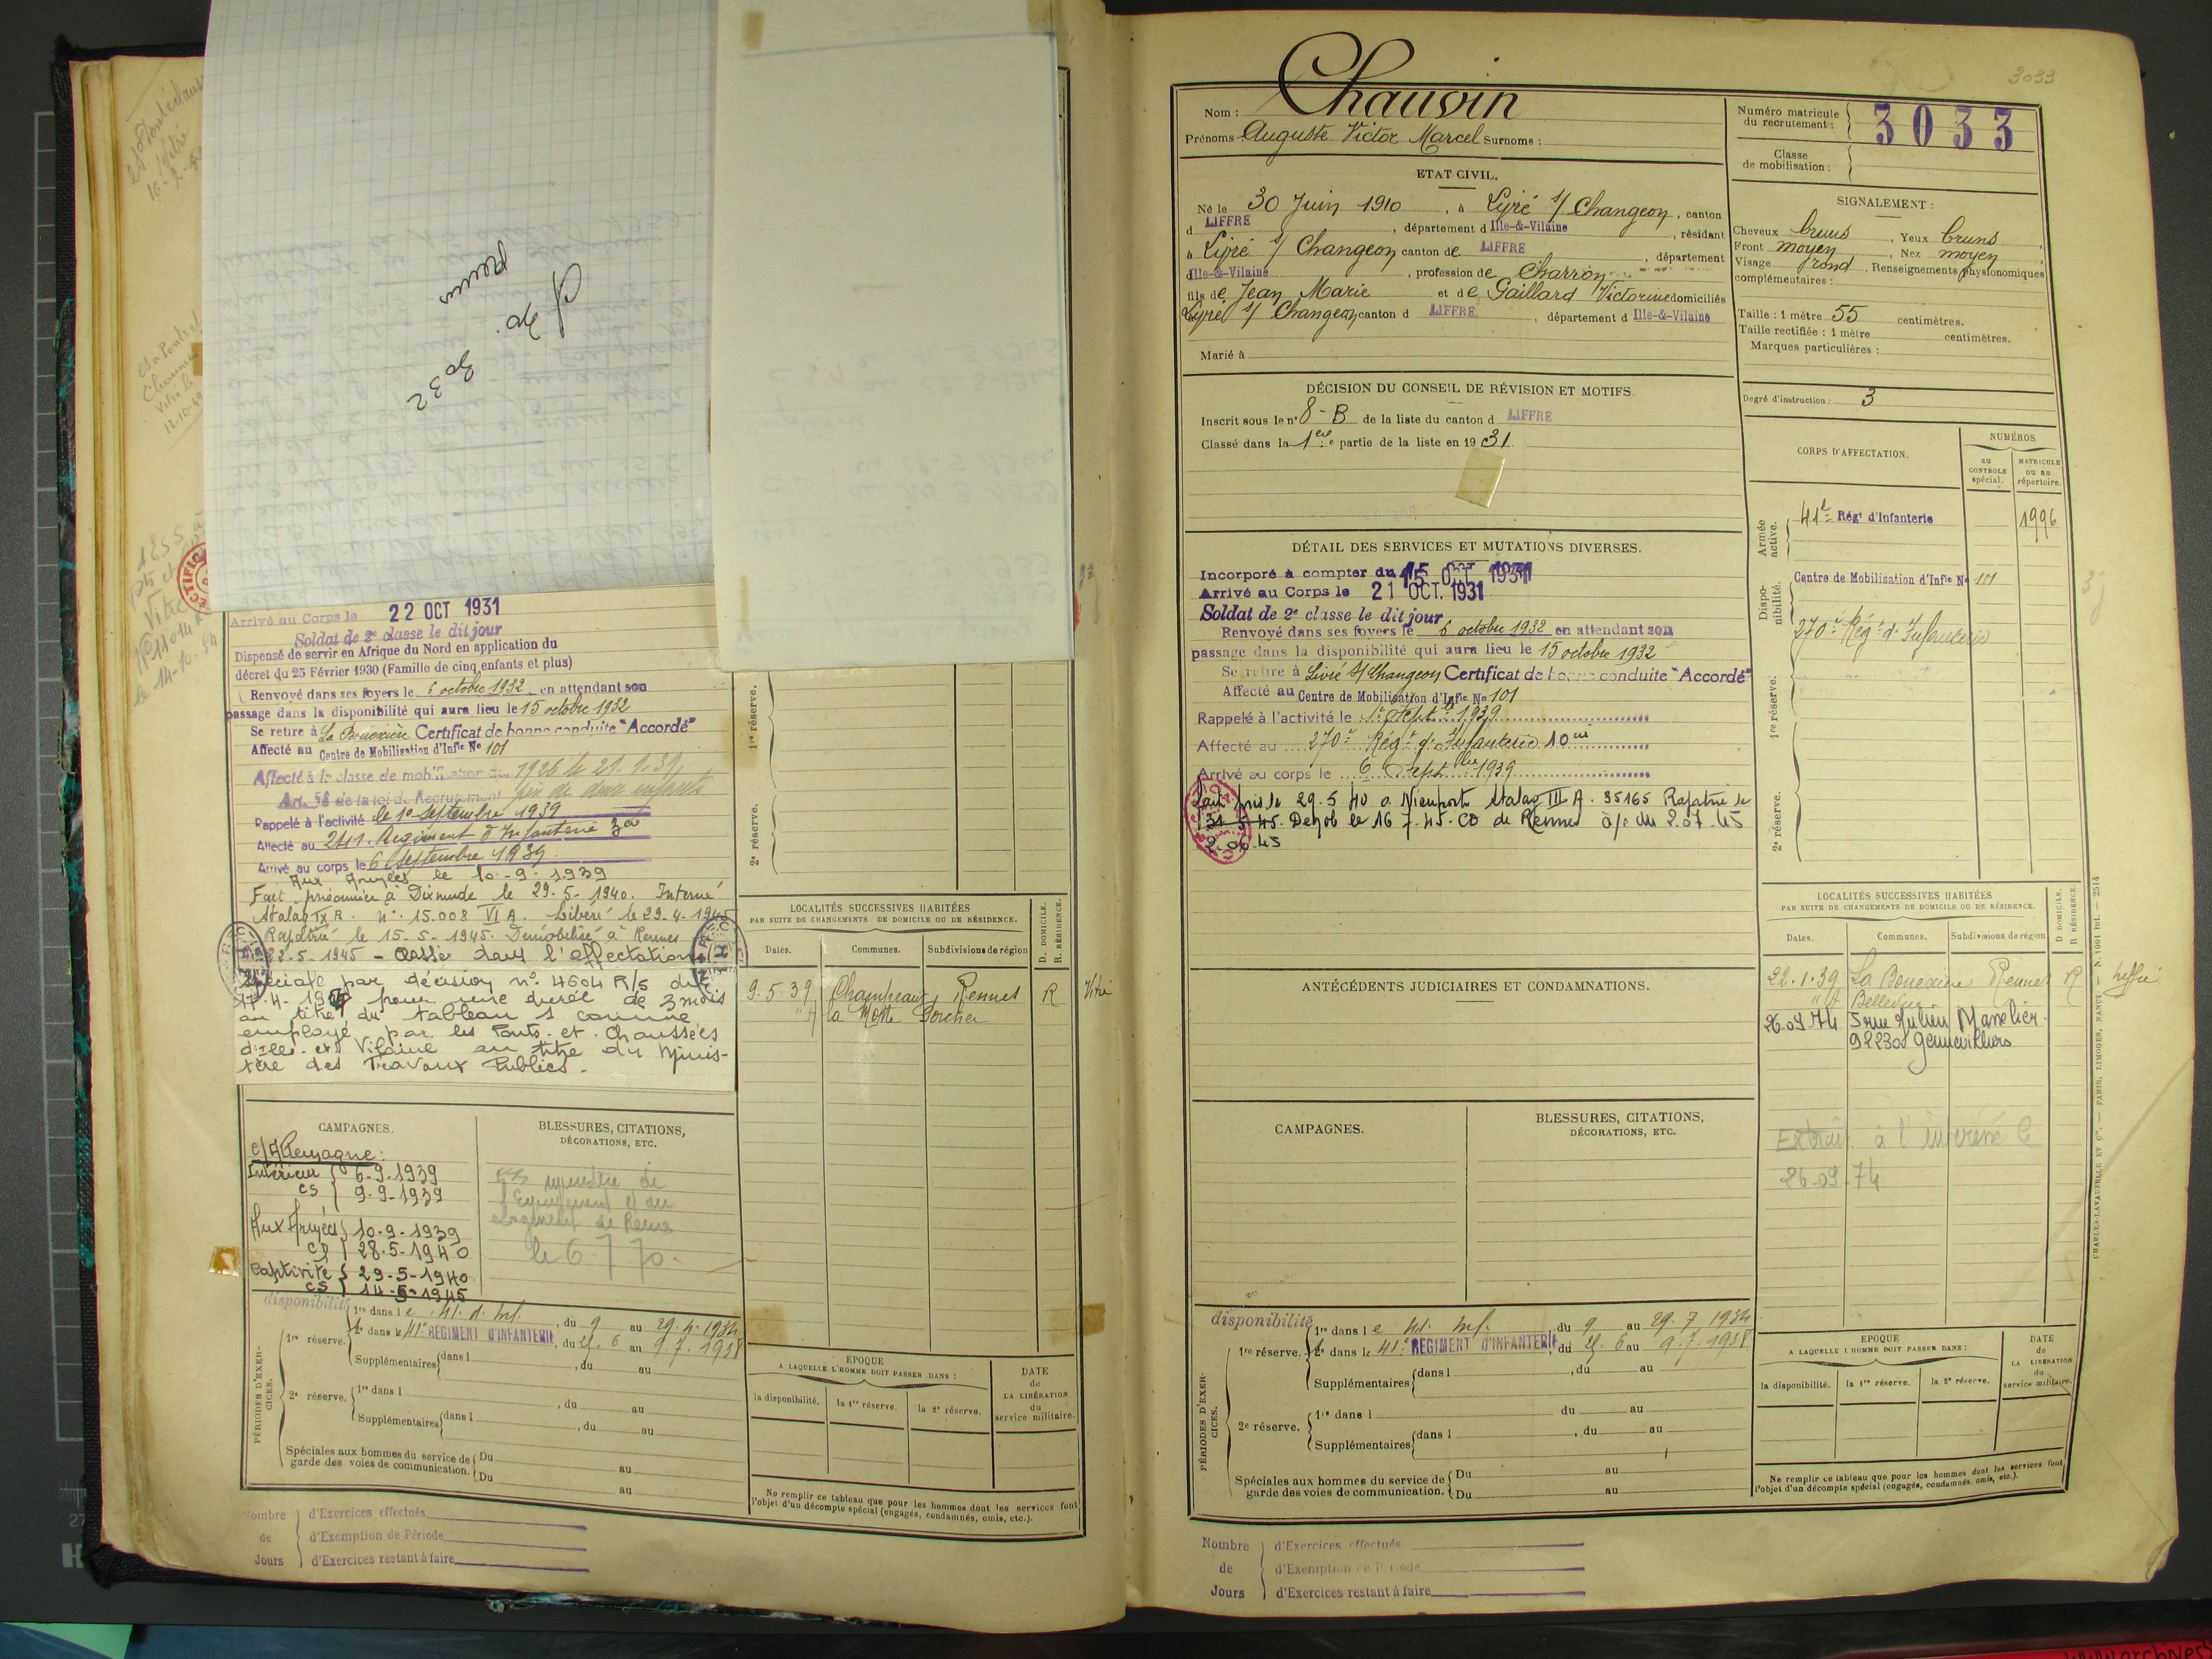 pr de
3032
Arrivé au Corps le 22 OCT 1931
Soldat de 2e classe le dit jour
Dispensé de servir en Afrique du Nord en application du
décret du 25 Février 1930 (Famille de cinq enfants et plus)
Renvoyé dans ses foyers le 6 octobre 1932 en attendant son
passage dans la disponibilité qui aura lieu le 15 octobre 1932
Se retire à La Bouexière Certificat de bonne conduite "Accordé"
Affecté au Centre de Mobilisation d'Infie No 101
Affecté à la classe de mobilisation de 1926 le 21.1.39
Art. 58 de la loi de Recrutement père de deux enfants
Rappelé à l'activité le 1er Septembre 1939
Affecté au 241e Régiment d'Infanterie
Arrivé au corps le 6 Septembre 1939
Aux Armées le 10-9-1939
Fait prisonnier à Dixmude le 29-5-1940. Interné
Stalag IX A. n° 15.008 VI A. Libéré le 29-4-1945
Rapatrié le 15-5-1945. Démobilisé à Rennes
22-5-1945 - Classé dans l'affectation
spéciale par décision n° 4604 R/S du
17-4- pour une durée de 3 mois
au titre du tableau 1 comme
employé par les Ponts et Chaussées
d'Ille et Vilaine au titre du Minis-
tère des Travaux Publics.
CAMPAGNES.
C/Allemagne:
Intérieur 6-9-1939
CS 9-9-1939
Aux Armées 10-9-1939
28-5-1940
Captivité 29-5-1940
CS 14-5-1945
BLESSURES, CITATIONS,
DÉCORATIONS, ETC.
ministère de
l'Equipement et du
Logement de Rennes
le 6-7-70
1re réserve.
2e réserve.
LOCALITÉS SUCCESSIVES HABITÉES
PAR SUITE DE CHANGEMENTS DE DOMICILE OU DE RÉSIDENCE.
D. DOMICILE.
R. RÉSIDENCE.
Dates. Communes. Subdivisions de région
9-5-39 Champeaux Rennes R Vitré
la Motte
disponibilité
PÉRIODES D'EXERCICES.
1re dans le 41. d. Inf. , du 9 au 29.4.1934
1re réserve. 2e dans le 41e REGIMENT D'INFANTERIE, du 21. 6 au 9.7.1938
Supplémentaires dans l , du au
2e réserve. 1re dans l , du au
Supplémentaires dans l , du au
Spéciales aux hommes du service de garde des voies de communication. Du au
Du au
EPOQUE
A LAQUELLE L'HOMME DOIT PASSER DANS :
la disponibilité. la 1re réserve. la 2e réserve.
DATE de LA LIBÉRATION du service militaire.
Ne remplir ce tableau que pour les hommes dont les services font
l'objet d'un décompte spécial (engagés, condamnés, omis, etc.).
Nombre de Jours
d'Exercices effectués
d'Exemption de Période
d'Exercices restant à faire
3033
Nom : Chauvin
Prénoms : Auguste Victor Marcel Surnoms :
Numéro matricule du recrutement : 3033
Classe de mobilisation :
ETAT CIVIL.
Né le 30 Juin 1910 , à Livré s/ Changeon, canton
d LIFFRE , département d Ille-&-Vilaine , résidant
à Livré s/ Changeon canton de LIFFRE , département
d Ille-&-Vilaine , profession de Charron
fils de Jean Marie et de Gaillard Victorine domiciliés
Livré s/ Changeon canton d LIFFRE , département d Ille-&-Vilaine
Marié à
SIGNALEMENT :
Cheveux bruns , Yeux bruns ,
Front moyen , Nez moyen ,
Visage rond , Renseignements physionomiques
complémentaires :
Taille : 1 mètre 55 centimètres.
Taille rectifiée : 1 mètre centimètres.
Marques particulières :
Degré d'instruction : 3
DÉCISION DU CONSEIL DE RÉVISION ET MOTIFS.
Inscrit sous le n° 8-B de la liste du canton d LIFFRE
Classé dans la 1ère partie de la liste en 1931.
DÉTAIL DES SERVICES ET MUTATIONS DIVERSES.
Incorporé à compter du 15 OCT 1931
Arrivé au Corps le 21 OCT. 1931
Soldat de 2e classe le dit jour
Renvoyé dans ses foyers le 6 octobre 1932 en attendant son
passage dans la disponibilité qui aura lieu le 15 octobre 1932
Se retire à Livré s/ Changeon Certificat de bonne conduite "Accordé"
Affecté au Centre de Mobilisation d'Infie No 101
Rappelé à l'activité le 1er Septbre 1939
Affecté au 270e Régt d'Infanterie
Arrivé au corps le 6 Septbre 1939
Fait pris le 29.5.40 a Nieuport Stalag III A. 35165 Rapatrié le
31-5-45. Demob le 16 7.45. CD de Rennes
2.06.45
CORPS D'AFFECTATION.
NUMÉROS
AU CONTROLE spécial.
MATRICULE ou au répertoire.
Armée active. 41e Régt d'Infanterie 1996
Disponibilité. Centre de Mobilisation d'Infie No 101
270e Régt d'Infanterie
1re réserve.
2e réserve.
LOCALITÉS SUCCESSIVES HABITÉES
PAR SUITE DE CHANGEMENTS DE DOMICILE OU DE RÉSIDENCE.
D DOMICILE.
R RÉSIDENCE.
Dates. Communes. Subdivisions de région
22.1.39 La Bouexière Rennes R Liffré
Bellevue
26.09 74 5 rue Julien
92230 Gennevilliers
Extrait à l'intéressé
26.09.74
ANTÉCÉDENTS JUDICIAIRES ET CONDAMNATIONS.
CAMPAGNES.
BLESSURES, CITATIONS,
DÉCORATIONS, ETC.
disponibilité
PÉRIODES D'EXERCICES.
1re dans le 41. Inf. du 9 au 29.7.1934
1re réserve. 2e dans le 41e REGIMENT D'INFANTERIE, du 21. 6 au 9.7.1938
Supplémentaires dans l , du au
2e réserve. 1re dans l du au
Supplémentaires dans l , du au
Spéciales aux hommes du service de garde des voies de communication. Du au
Du au
EPOQUE
A LAQUELLE L'HOMME DOIT PASSER DANS :
la disponibilité. la 1re réserve. la 2e réserve.
DATE de LA LIBÉRATION du service militaire.
Ne remplir ce tableau que pour les hommes dont les services font
l'objet d'un décompte spécial (engagés, condamnés, omis, etc.).
Nombre de Jours
d'Exercices effectués
d'Exemption de Période
d'Exercices restant à faire
CHARLES-LAVAUZELLE ET Cie. — PARIS, LIMOGES, NANCY